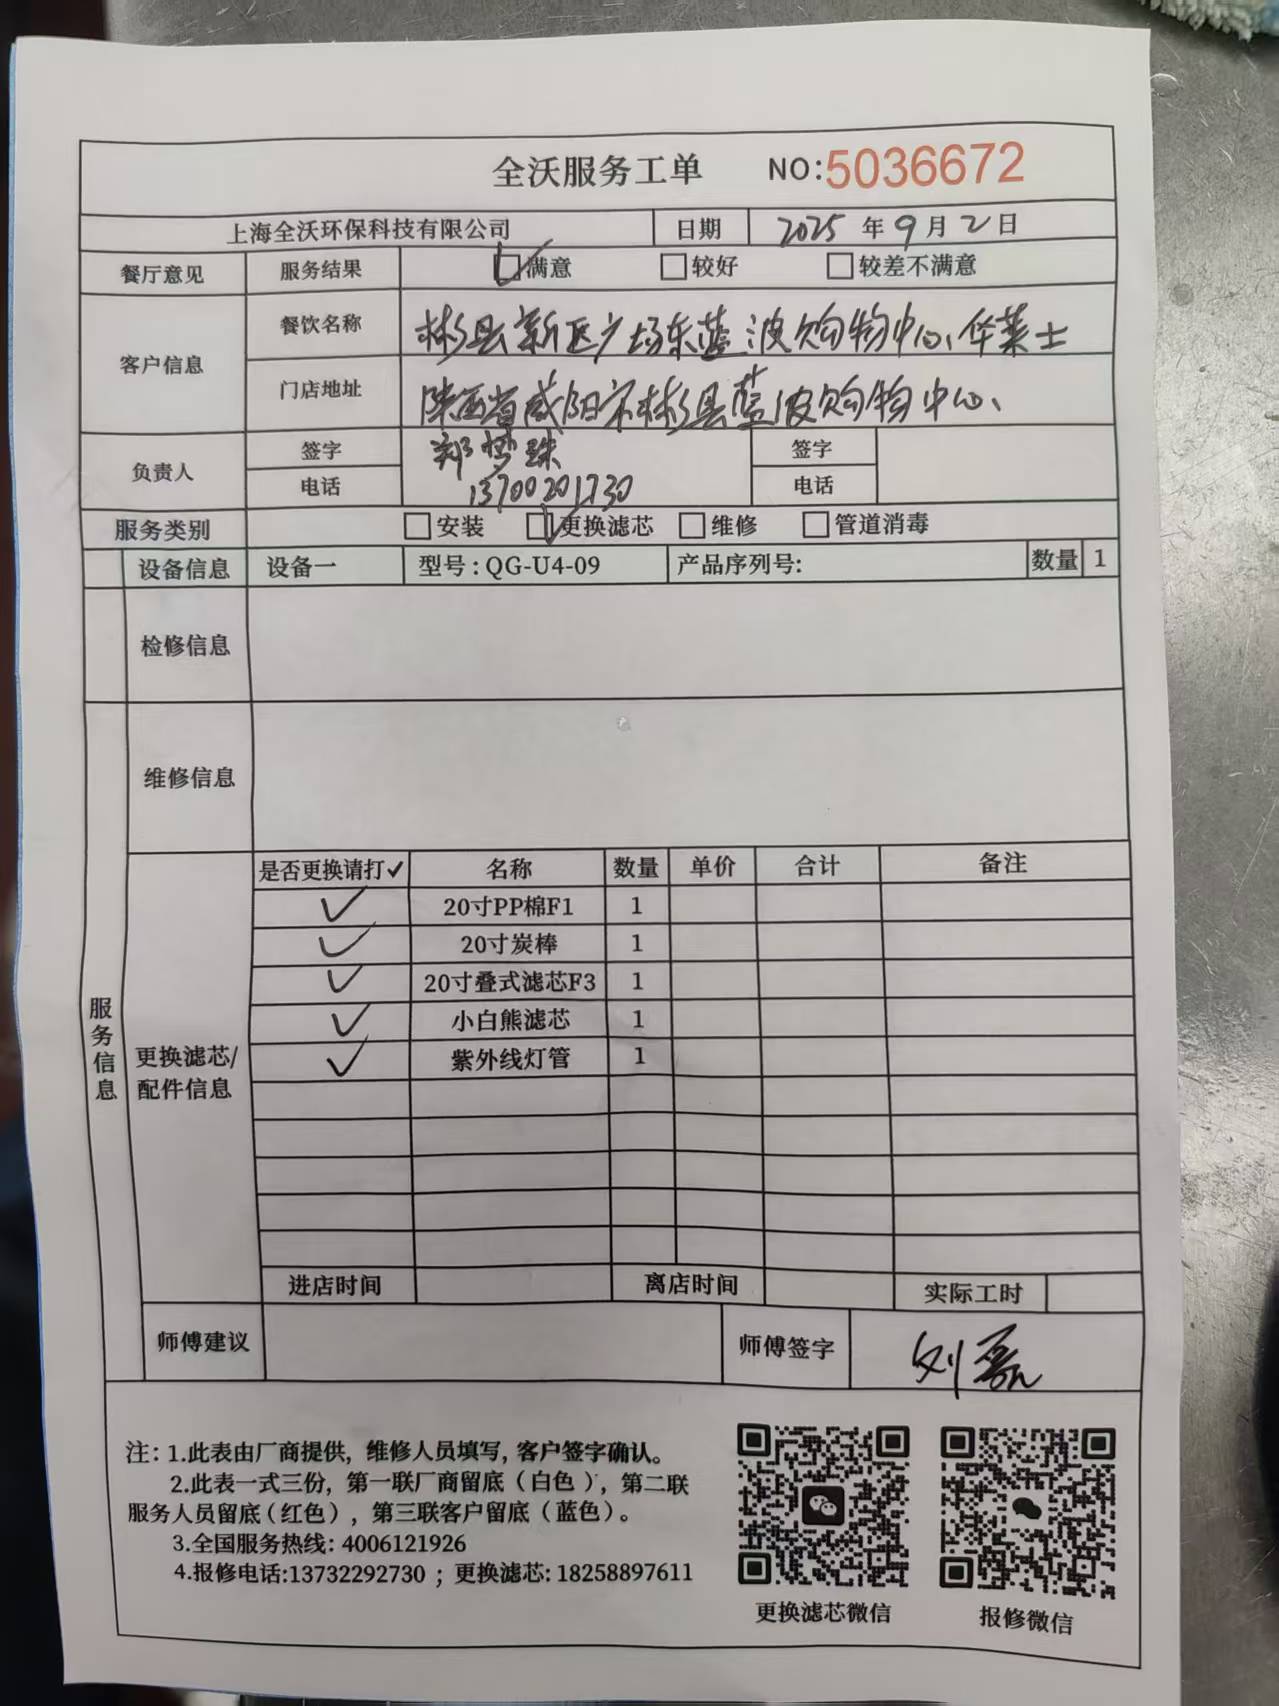 全沃服务工单 NO:5036672
上海全沃环保科技有限公司 日期 2025年9月2日
餐厅意见 服务结果 满意 较好 较差不满意
客户信息 餐饮名称 彬县新区广场东蓝波购物中心、华莱士
门店地址 陕西省咸阳市彬县蓝波购物中心、
负责人 签字 郑梦珠 签字
电话 13700201730 电话
服务类别 安装 更换滤芯 维修 管道消毒
设备信息 设备一 型号:QG-U4-09 产品序列号: 数量 1
检修信息
维修信息
服务信息
更换滤芯/配件信息
是否更换请打✓ 名称 数量 单价 合计 备注
✓ 20寸PP棉F1 1
✓ 20寸炭棒 1
✓ 20寸叠式滤芯F3 1
✓ 小白熊滤芯 1
✓ 紫外线灯管 1
进店时间 离店时间 实际工时
师傅建议 师傅签字 刘磊
注:1.此表由厂商提供,维修人员填写,客户签字确认。
2.此表一式三份,第一联厂商留底(白色),第二联
服务人员留底(红色),第三联客户留底(蓝色)。
3.全国服务热线:4006121926
4.报修电话:13732292730 ;更换滤芯:18258897611
更换滤芯微信 报修微信